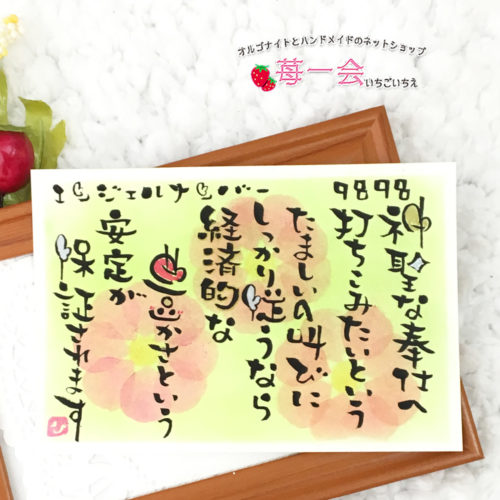 オルゴナイトとハンドメイドのネットショップ
苺一会 いちごいちえ
エンジェルナンバー 9898
神聖な奉仕へ
打ちこみたいという
たましいの叫びに
しっかり従うなら
経済的な
豊かさという
安定が
保証されます